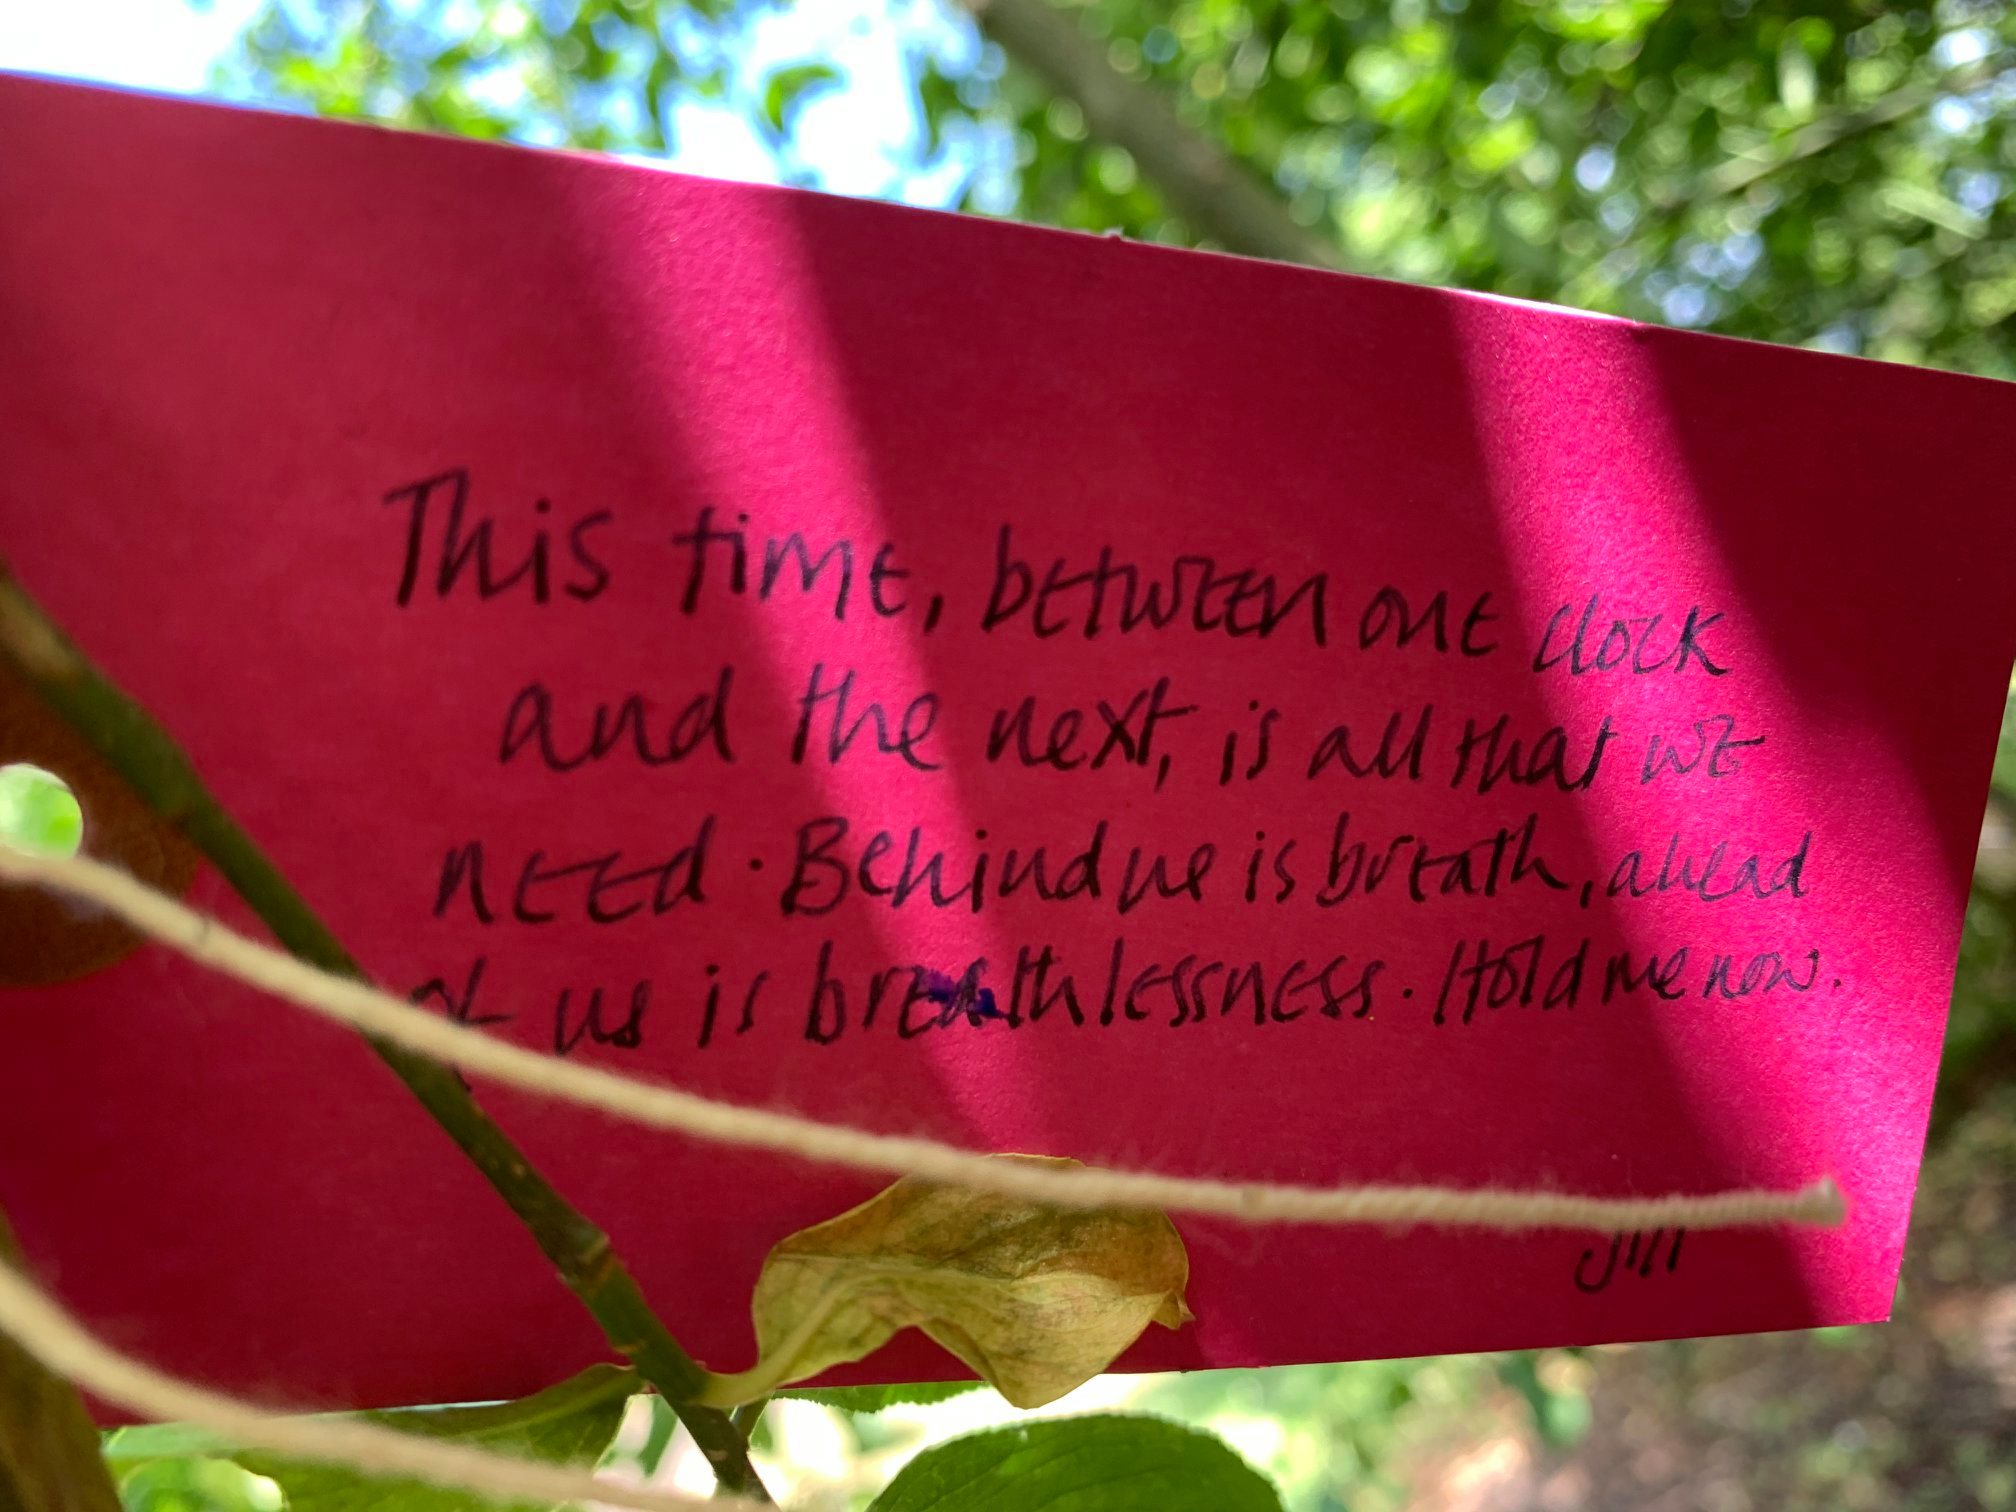 This time, between one clock
and the next, is all that we
need. Behind me is breath, ahead
of us is breathlessness. Hold me now.
Jill